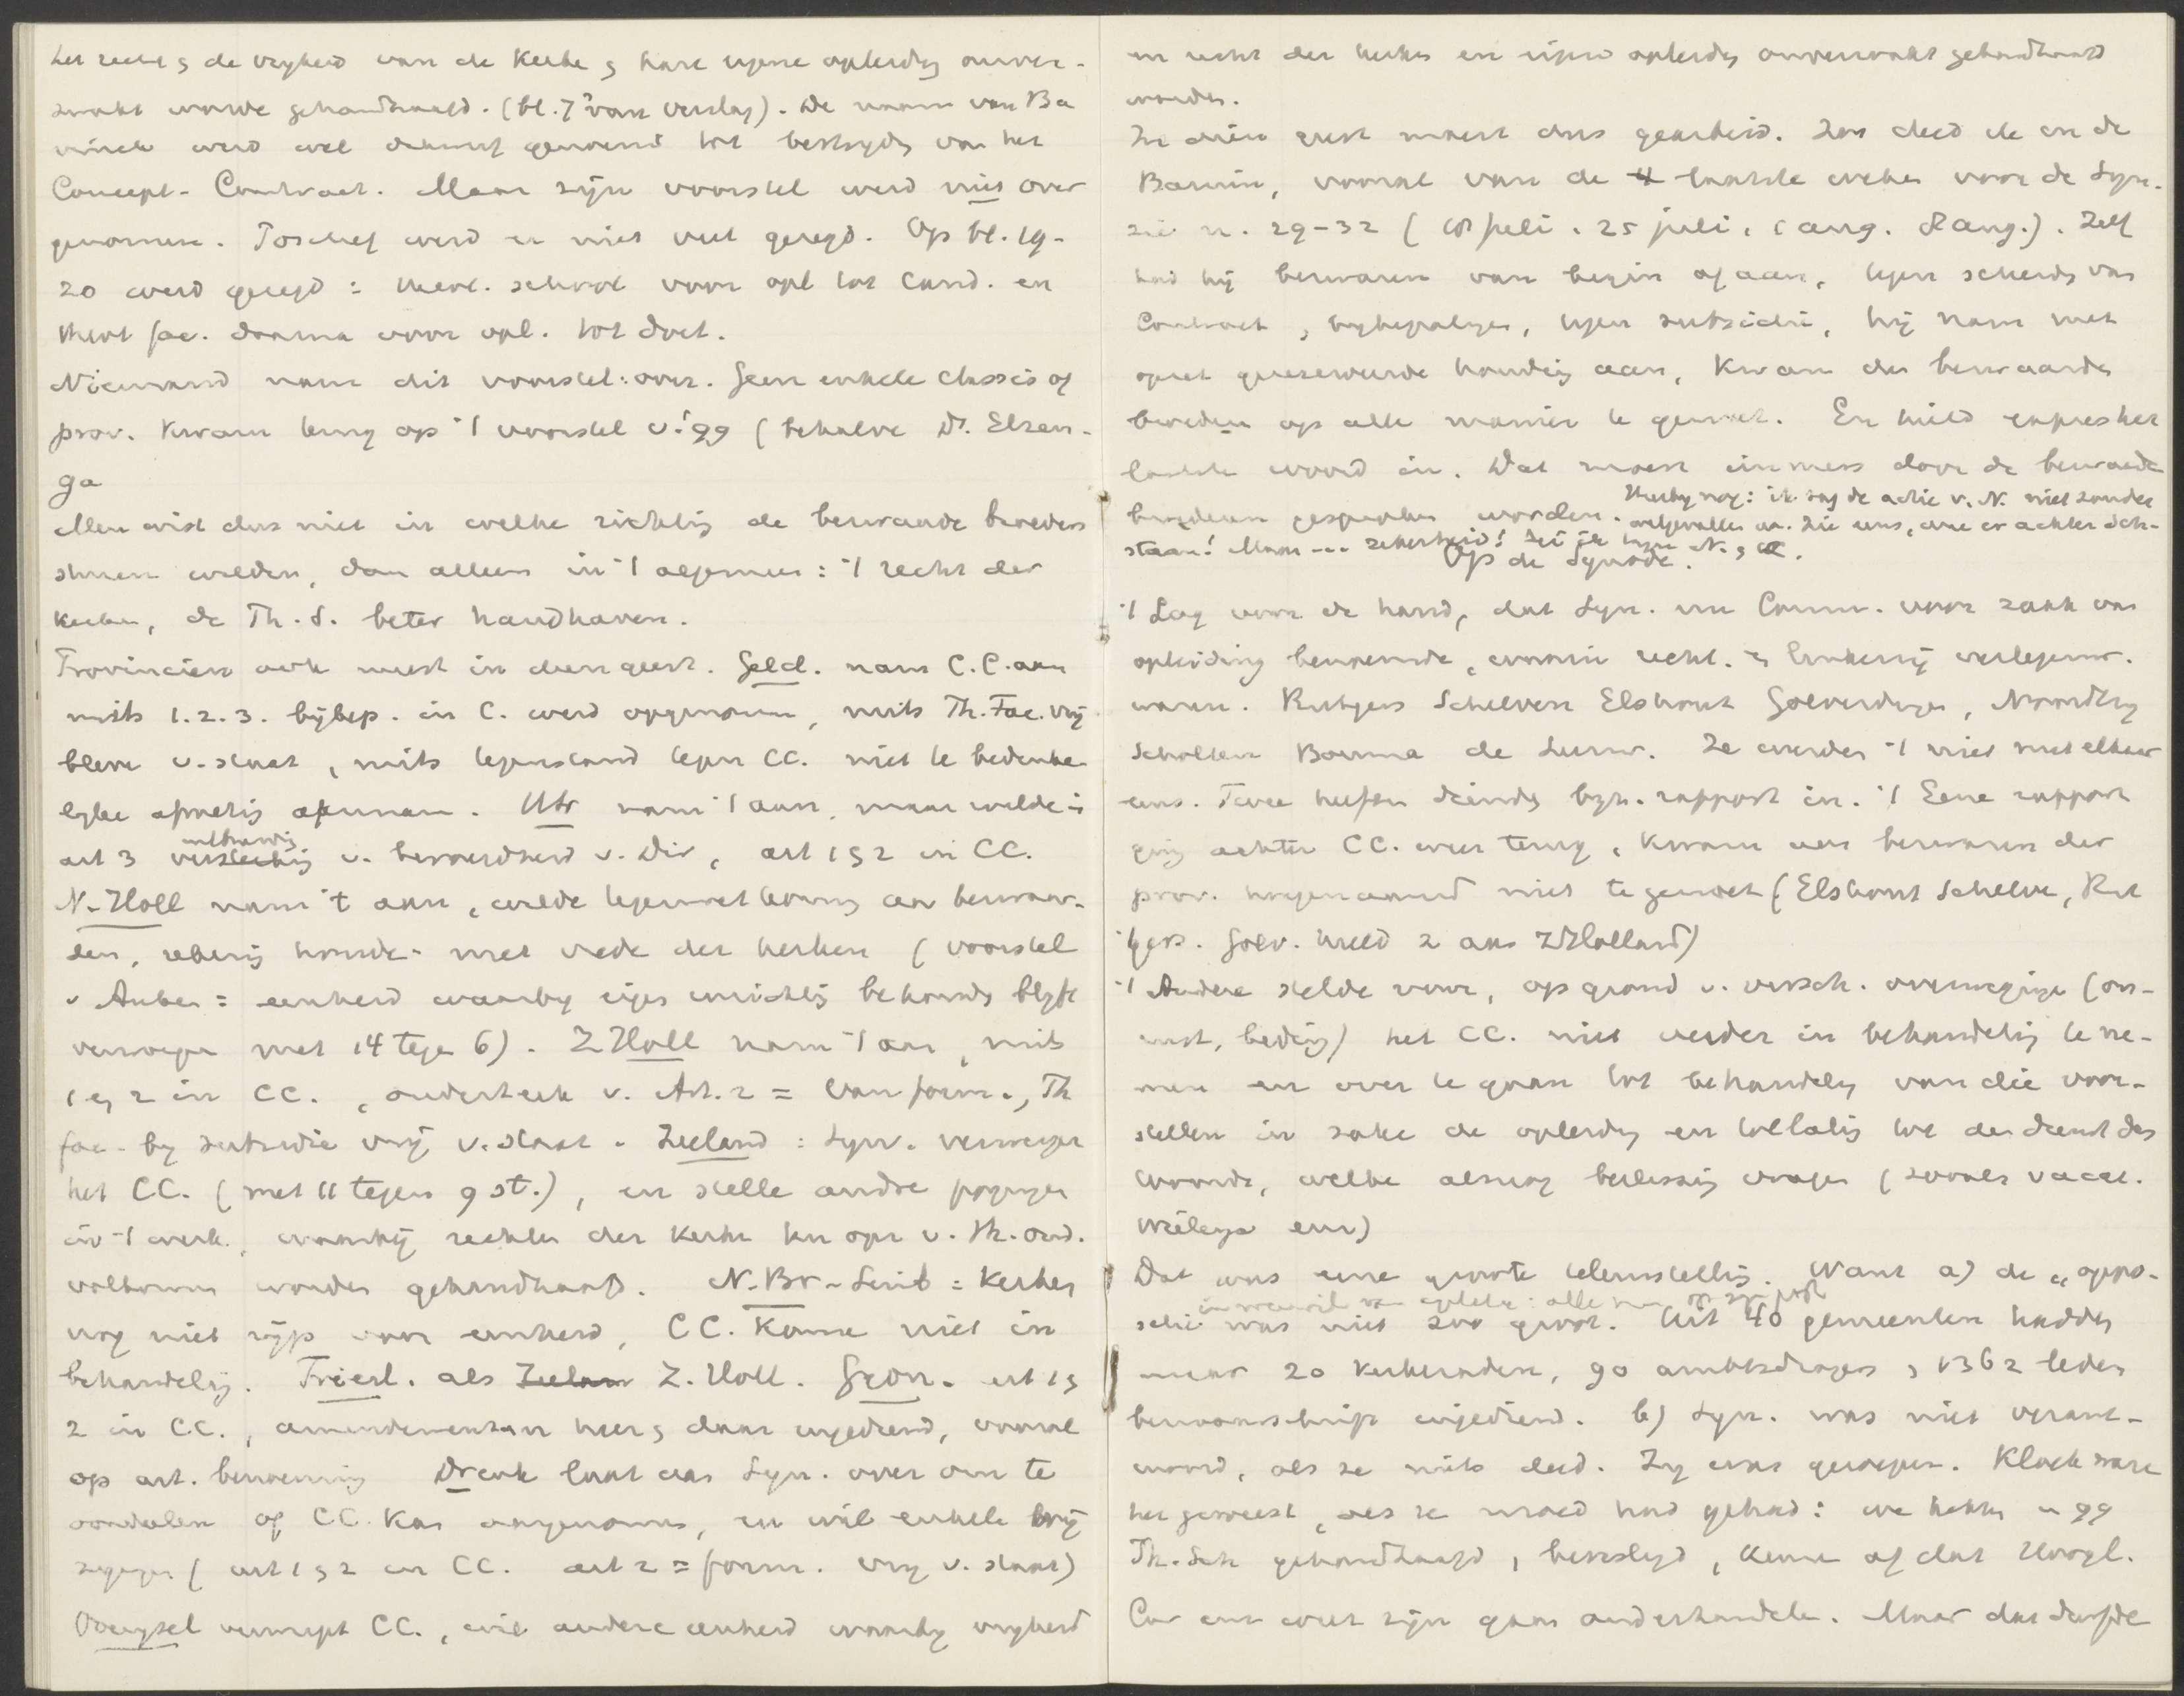 het recht & de vrijheid van de Kerke & hare eigene opleiding onver-
zwakt worde gehandhaafd. (bl. 7 van verslag). De naam van Ba
vinck werd wel genoemd tot bestrijding van het
Concept-Contract. Maar zijn voorstel werd niet over
genomen. werd er niet veel gezegd. Op bl. 19-
20 werd gezegd: theol. school voor opl tot Cand. en
theol fac. daarna voor opl. tot doct.
Niemand nam dit voorstel over. Geen enkele classis of
prov. kwam terug op 't voorstel v. '99 (behalve Ds. Elzen-
ga
Men wist dus niet in welke richting de bezwaarde broeders
sturen wilden, dan alleen in 't algemeen: 't recht der
kerken, de Th. S. beter handhaven.
Provinciën ook meest in dien geest. Geld. nam C.C. aan
mits 1. 2. 3. bijbep. in C. werd opgenomen, mits Th. Fac. vrij
bleve v. staat, mits tegenstand tegen CC. niet te bedenke
lijke afmeting aannam. Utr nam 't aan, maar wilde in
art 3 v. v. Dir, art 1 & 2 in CC.
N-Holl nam 't aan, wilde tegemoetkoming aan bezwaar-
den, rekening houde met vrede der kerken (voorstel
v Anber = eenheid waarbij eigen inrichting behouden blijft
verworpen met 14 tegen 6). Z Holl nam 't aan, mits
1 en 2 in CC., onderteek v. Art. 2 = van form., Th
fac. bij subsidie vrij v. staat. Zeeland: Syn. verwerpe
het CC. (met 11 tegen 9 st.), en stelle andre pogingen
in 't werk, waarbij rechten der Kerken ten opz v. Th. ond.
volkomen worden gehandhaafd. N.Br-Limb = Kerken
nog niet rijp voor eenheid, CC. kome niet in
behandeling. Friesl. als Zeelan Z. Holl. Gron. art 1 &
2 in C.C., amendementen hier & daar ingediend, vooral
op art. benoeming Drente laat aan Syn. over om te
oordeelen of CC. kan aangenomen, en wil enkele wij
zigingen (art 1 & 2 in CC. art 2 = form. vrij v. staat)
Overijsel verwerpt CC., wil andere eenheid waarbij vrijheid
en recht der kerken en eigen opleiding onverzwakt gehandhaafd
worden.
In dien geest moest dus gearbeid. Zoo deed de en de
Bazuin, vooral van de 4 laatste weken voor de Syn.
zie n. 29-32 (18 juli. 25 juli, 1 aug. 8 aug.). Zelf
had hij bezwaren van begin af aan, tegen scheiding van
Contract & bijbepalingen, tegen subsidie, hij nam met
opzet gereserveerde houding aan, kwam den bezwaarden
broederen op alle manier te gemoet. En hield expres het
laatste woord in. Dat moest immers door de bezwaarde
broederen gesproken worden. Hierbij nog: ik zag de actie v. N. niet zonder
welgevallen aan. Zie eens, wie er achter Sch-
staan! Maar --- zekerheid! tegen N. &
Op de Synode.
't Lag voor de hand, dat Syn. een Comm. voor zaak van
opleiding benoemde, waarin recht. & linkerzij vertegenw.
waren. Rutgers Scheeven Elshout Goeverdingen, Noordtzij
Scholten Bouma de Leeuw. Ze werden 't niet met elkaar
eens. Twee heften diende bijz. rapport in. 't Eene rapport
ging achter CC. weer terug, kwam aan bezwaren der
prov. hoegenaamd niet te gemoet (Elshout Scheeve, Rut
gers. Goev. hield 2 aan ZHolland)
't Andere stelde voor, op grond v. versch. overwegingen (on-
rust, beding) het CC. niet verder in behandeling te ne-
men en over te gaan tot behandeling van die voor-
stellen in zake de opleiding en toelating tot den dienst des
Woords, welke alsnog beslissing vragen (zooals vacat.
Wielenga enz)
Dat was eene groote teleurstelling. Want a) de „oppo-
sitie was niet zoo groot. Uit 40 gemeenten hadden
maar 20 kerkeraden, 90 ambtsdragers & 1362 leden
bezwaarschrift ingediend. b) Syn. was niet verant-
woord, als ze niets deed. Zij was geroepen. Kloek ware
het geweest, als ze moed had gehad: we hebben in 99
Th. Sch gehandhaafd, bevestigd, kome of dat Hoogl.
Cur eens weer zijn gaan onderhandelen. Maar dat durfde